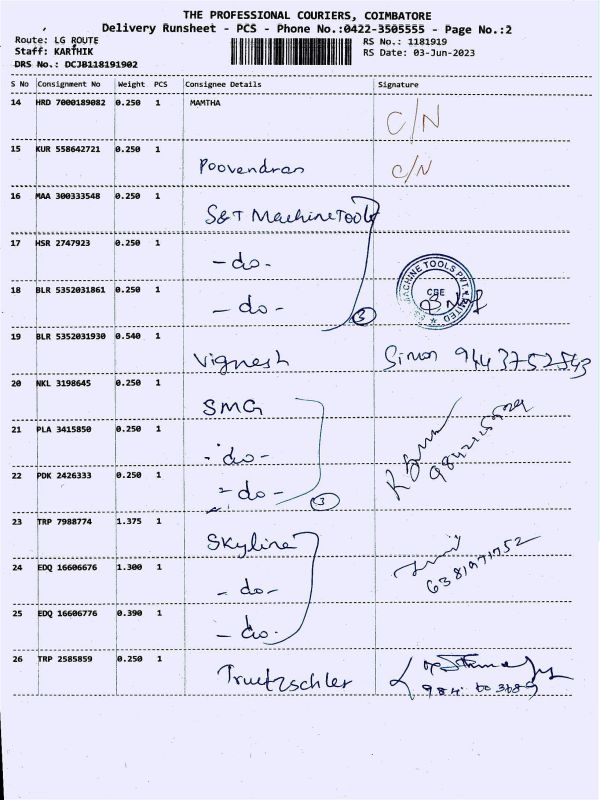 THE PROFESSIONAL COURIERS, COIMBATORE
Delivery Runsheet - PCS - Phone No.:0422-3505555 - Page No.:2
Route: LG ROUTE RS No.: 1181919
Staff: KARTHIK RS Date: 03-Jun-2023
DRS No.: DCJB118191902
S No Consignment No Weight PCS Consignee Details Signature
14 HRD 7000189082 0.250 1 MAMTHA C/N
15 KUR 558642721 0.250 1 Poovendran C/N
16 MAA 300333548 0.250 1 S&T Machine Tools
17 HSR 2747923 0.250 1 - do -
18 BLR 5352031861 0.250 1 - do - 3
MACHINE TOOLS PVT. LIMITED
CBE
19 BLR 5352031930 0.540 1 Vignesh Simon 9443752543
20 NKL 3198645 0.250 1 SMG
21 PLA 3415850 0.250 1 - do -
22 PDK 2426333 0.250 1 - do - 3
23 TRP 7988774 1.375 1 Skyline
24 EDQ 16606676 1.300 1 - do - 6381971752
25 EDQ 16606776 0.390 1 - do -
26 TRP 2585859 0.250 1 Truetzschler